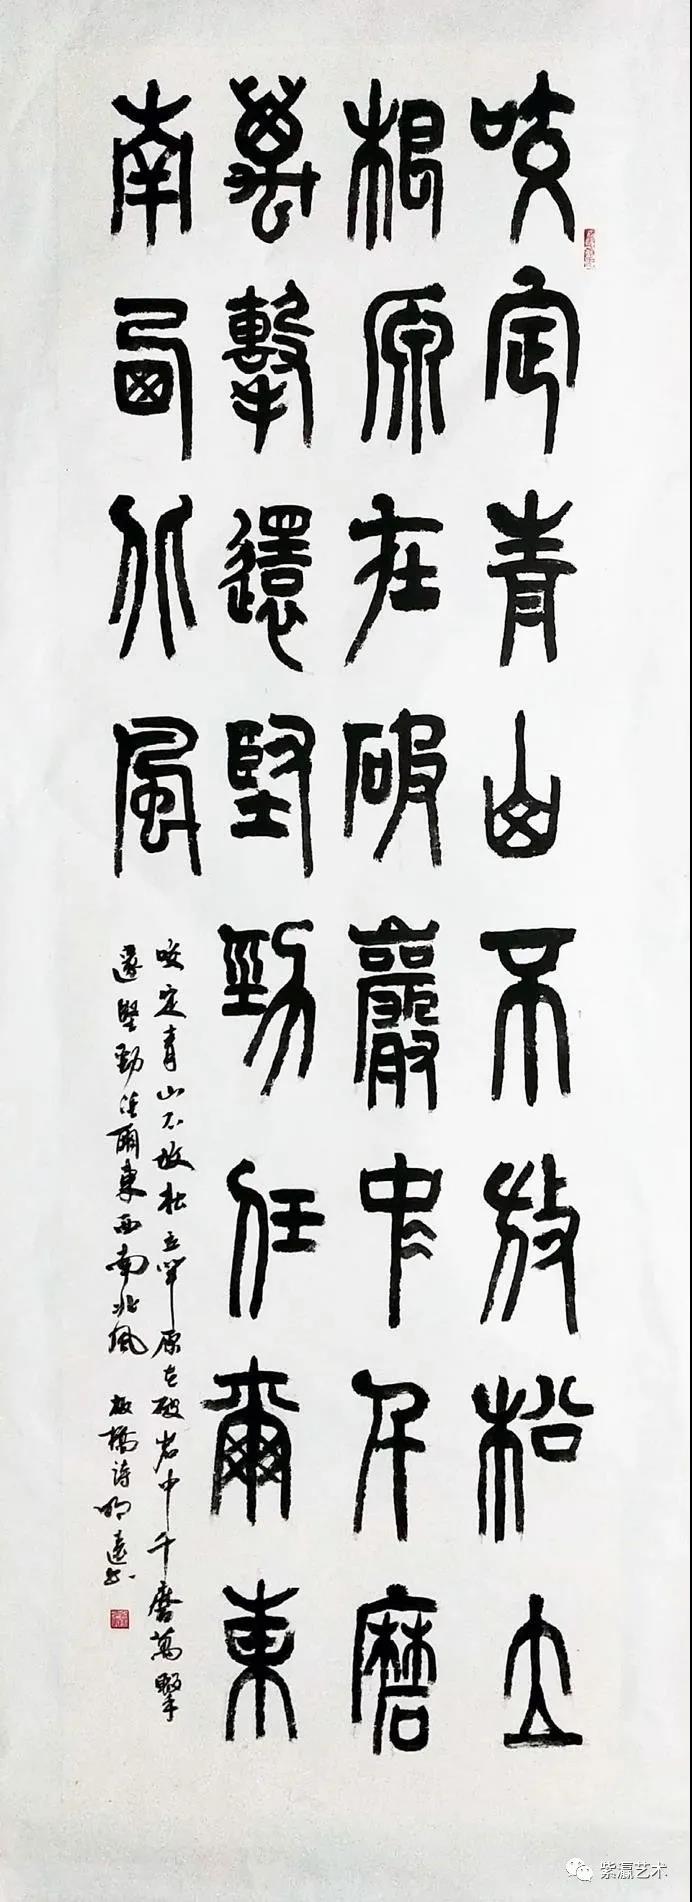 咬定青山不放松立
根原在破巖中千磨
萬擊還堅勁任爾東
南西北風
咬定青山不放松立根原在破岩中千磨萬擊
還堅勁任爾東西南北風 板橋詩 明遠书
紫瀛艺术